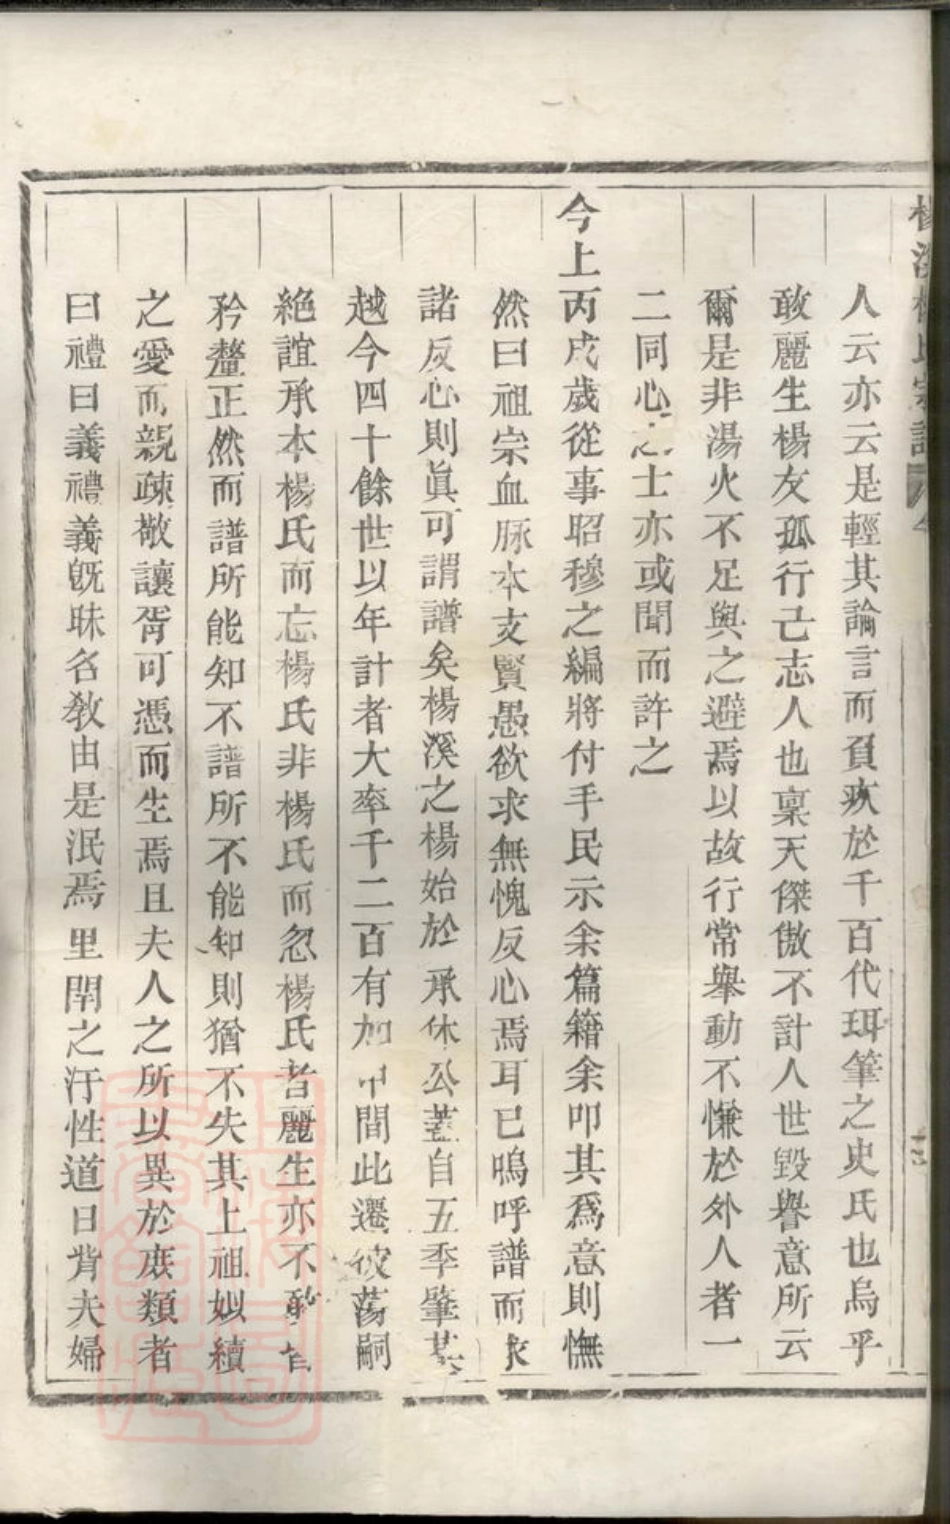 人云亦云是輕其論言而負疚於千百代珥筆之史氏也烏乎
敢麗生楊友孤行己志人也稟天傑傲不計人世毀譽意所云
爾是非湯火不足與之避焉以故行常舉動不慊於外人者一
二同心之士亦或聞而許之
今上丙戌歲從事昭穆之編將付手民示余篇籍余叩其為意則憮
然曰祖宗血脉本支賢愚欲求無愧反心焉耳已嗚呼譜而求
諸反心則眞可謂譜矣楊溪之楊始於承休公蓋自五季肇基
越今四十餘世以年計者大率千二百有加中間此遷彼蕩嗣
絶誼承本楊氏而忘楊氏非楊氏而忽楊氏者麗生亦不敢
矜釐正然而譜所能知不譜所不能知則猶不失其上祖姒續
之愛而親疎敬讓胥可憑而生焉且夫人之所以異於庶類者
曰禮曰義禮義旣昧名敎由是泯焉里閈之汙性道日背夫婦